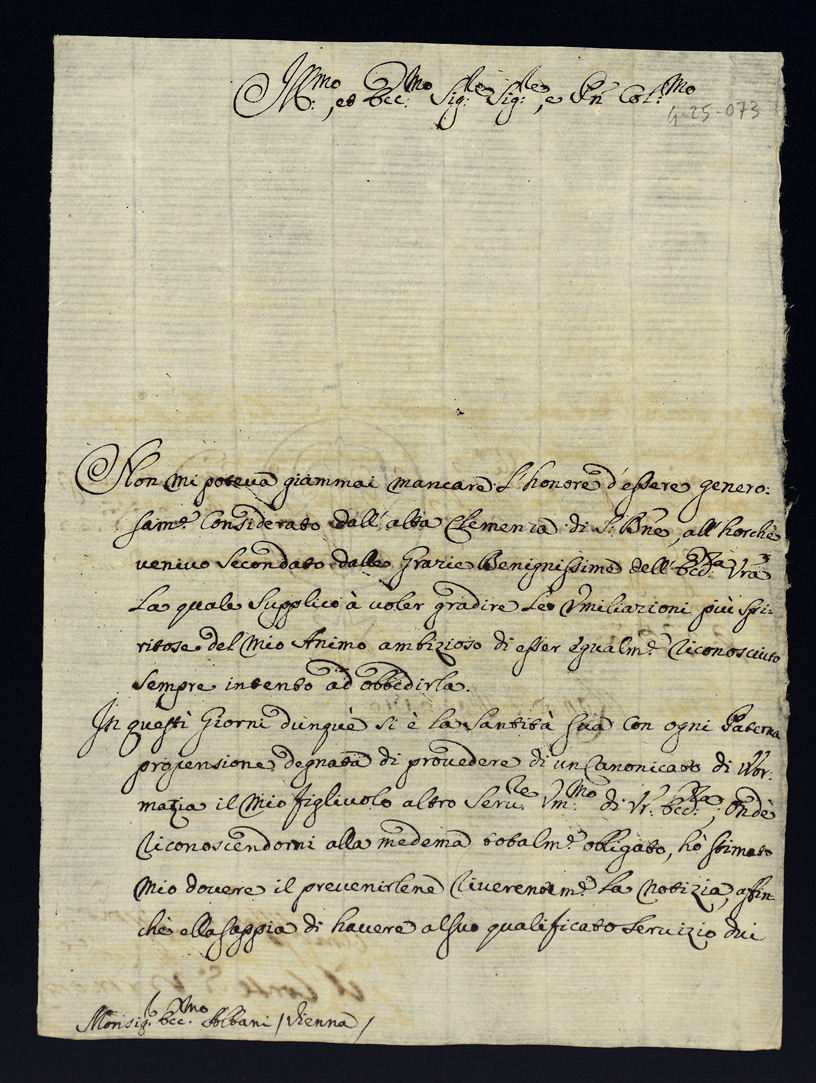 Ill:mo, et Ecc:mo Sig:re Sig:re, e Pn Col:mo
4-25-073
Non mi poteva giammai mancare l'honore d'essere genero:
sam:e considerato dall'alta Clemenza di S: Bne, all'horche
venivo secondato dalle Grazie Benignissime dell'Ecc:za Vra
La quale supplico à voler gradire le Vmiliazioni più spi:
ritose del Mio Animo ambizioso di esser egualm:e riconosciuto
sempre intento ad obbedirla.
In questi Giorni dunque si è la Santità Sua con ogni Paterna
propensione degnata di provedere di un Canonicato di Wor:
mazia il Mio figlivolo altro Serv:re Vm:mo di Vr: Ecc:za, onde
riconoscendomi alla medema totalm:e obligato, hò stimato
Mio dovere il prevenirlene riverentem:e La notizia, affin:
chè ella sappia di havere al suo qualificato servizio dui
Monsig:r Ecc:mo Albani / Vienna /